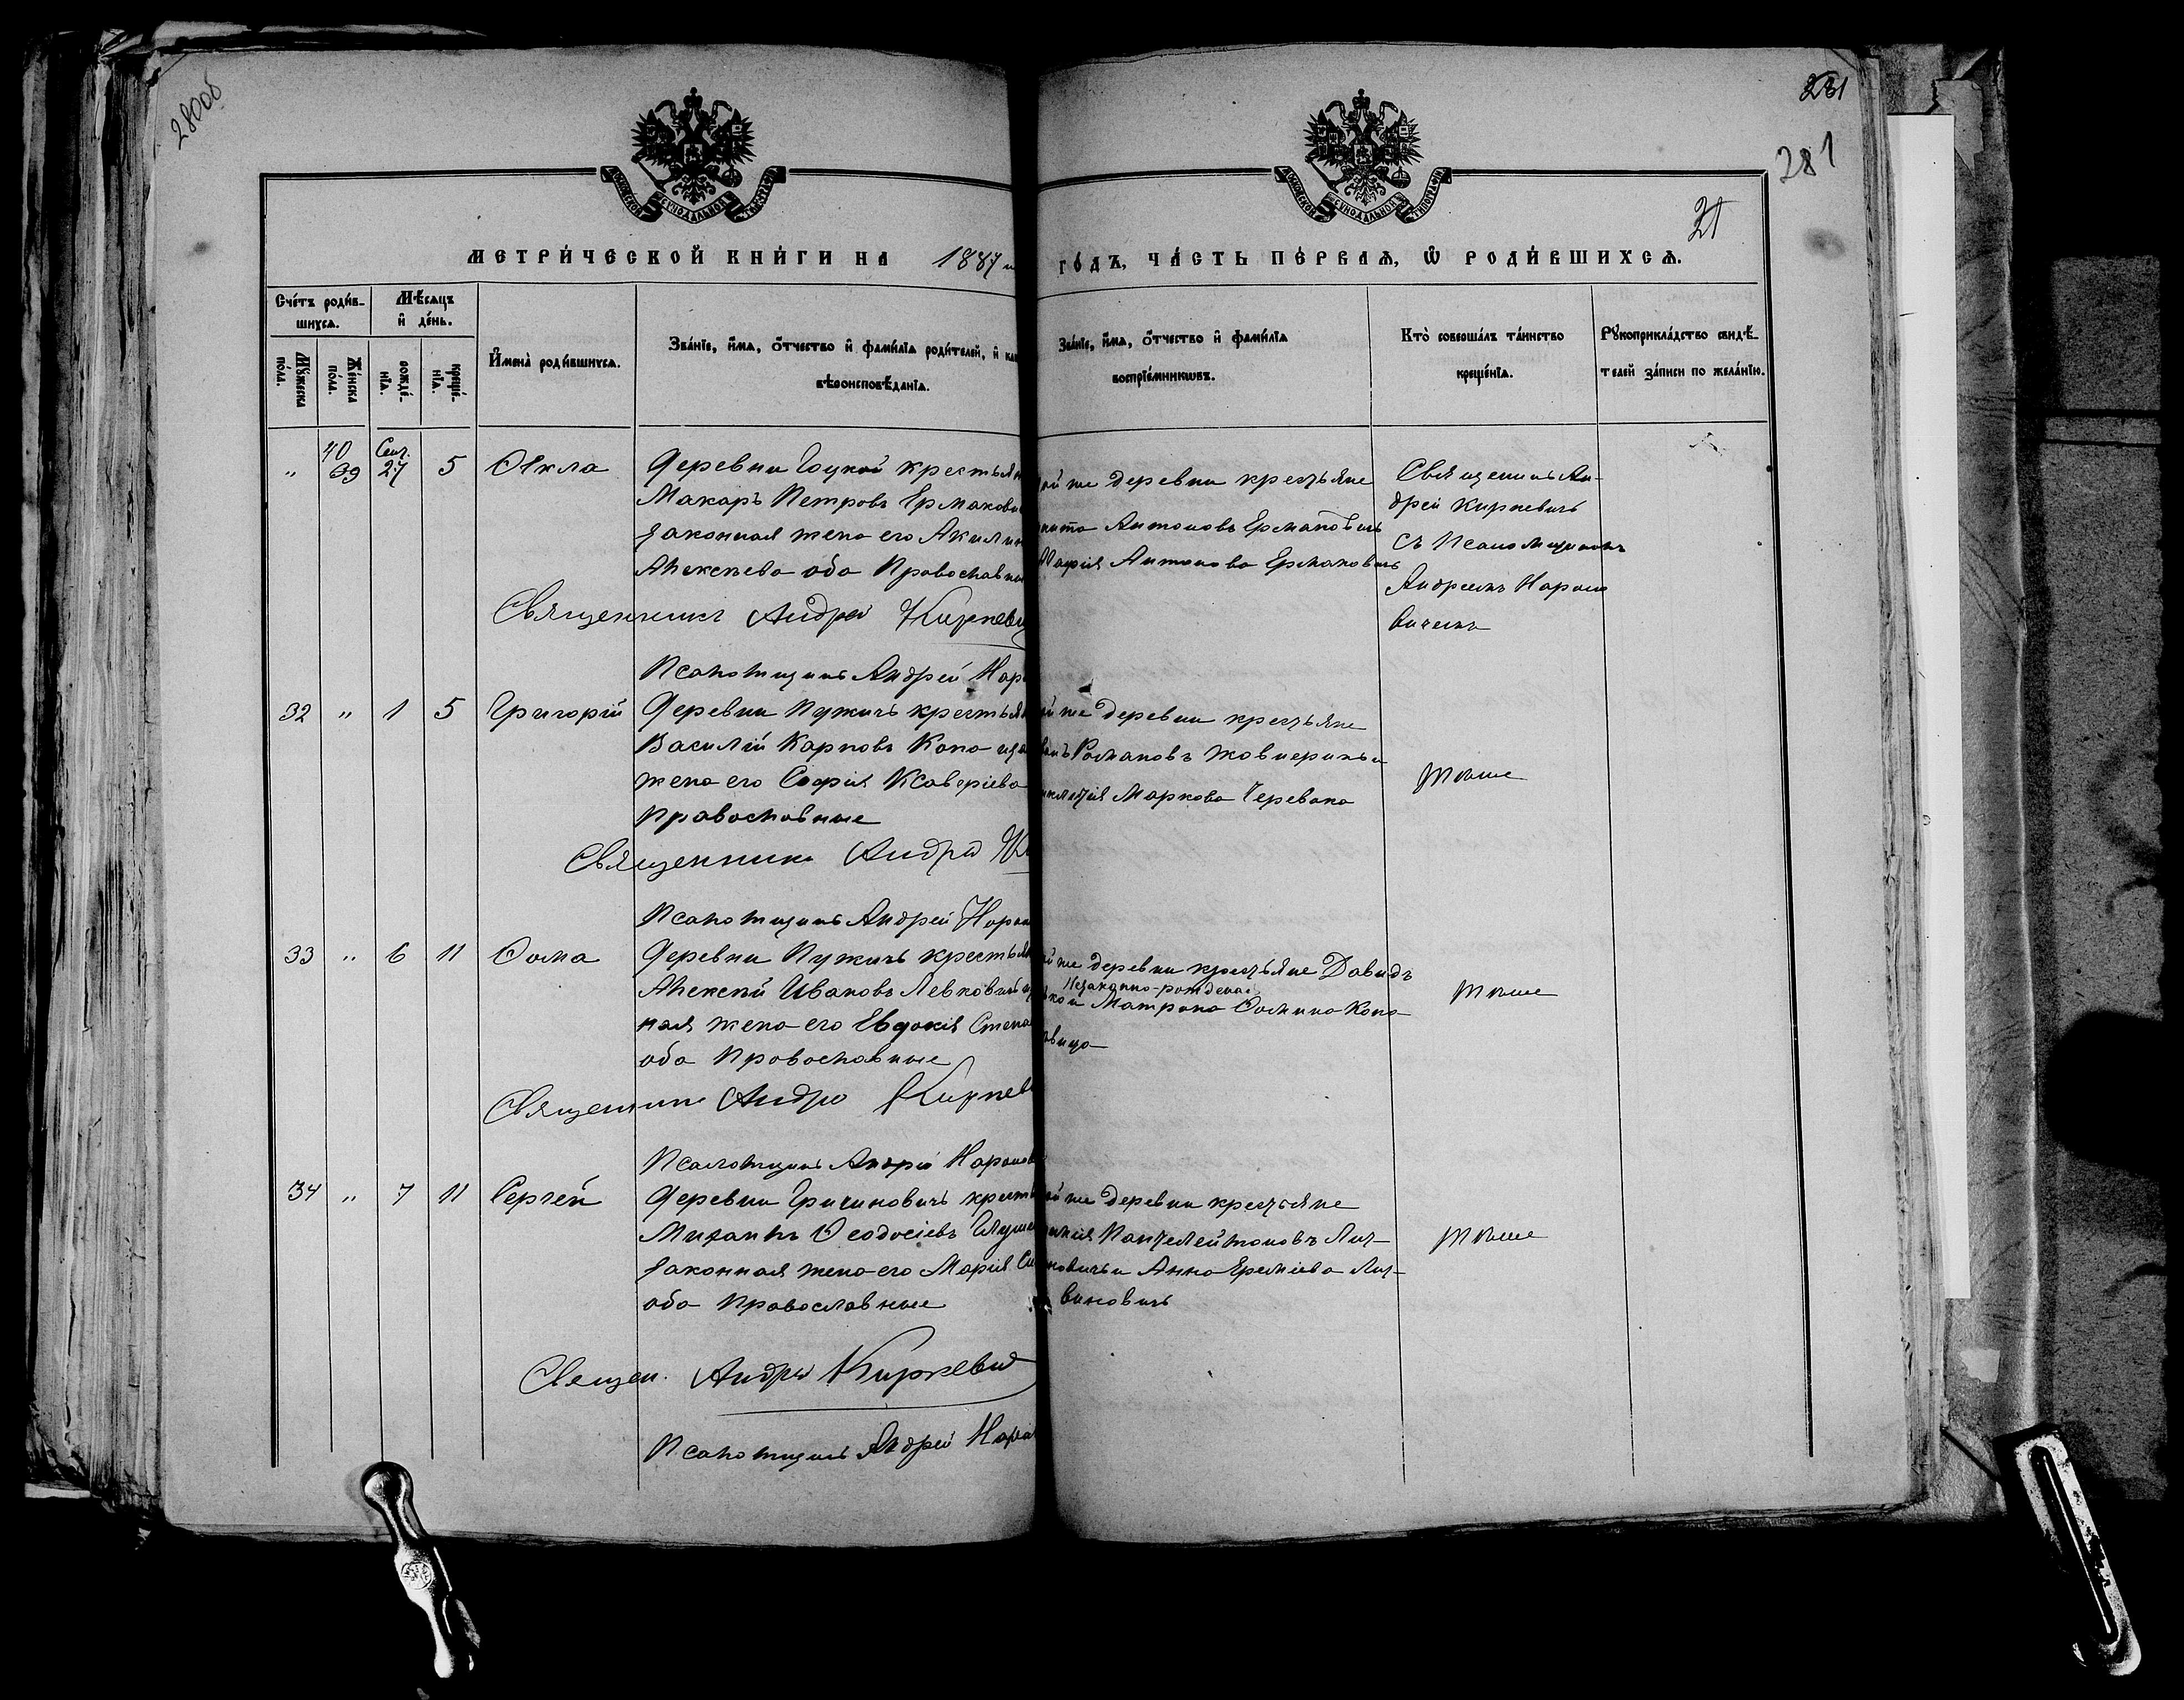 280об
281
281
21
МОСКОВСКОЙ СѴНОДАЛЬНОЙ ТИПОГРАФІИ
МОСКОВСКОЙ СѴНОДАЛЬНОЙ ТИПОГРАФІИ
МЕТРИ́ЧЕСКОЙ КНИ́ГИ НА 1887 ГО́ДЪ, ЧА́СТЬ ПЕ́РВАѦ, Ѡ РОДИ́ВШИХСѦ.
Сче́тъ роди́в-
шихсѧ.
Мѣ́сѧцъ
и҆ де́нь.
Мꙋ́жеска
по́ла.
Же́нска
по́ла.
рожде́-
нїѧ.
креще́-
нїѧ.
И҆мена̀ роди́вшихсѧ.
Зва́нїе, и҆́мѧ, ѻ҆́тчество и҆ фами́лїѧ роди́телей, и҆ как
вѣроисповѣ́данїѧ.
Зва́нїе, и҆́мѧ, ѻ҆́тчество и҆ фами́лїѧ
воспрїе́мникѡвъ.
Кто̀ соверша́лъ та́инство
креще́нїѧ.
Рꙋкоприкла́дство свидѣ́-
телей за́писи по жела́нїю.
" 40 39 Сен. 27 5 Ѳекла
Деревни Гоцкой крестьян
Макаръ Петровъ Ермакови
законная жена его Акилин
Алексѣева оба Православны
Священникъ Андрей Киркевич
Псаломщикъ Андрей Нар
ой же деревни крестьяне
Антоновъ Ермаковичъ
Марія Антонова Ермаковичъ
Священникъ Ан-
дрей Киркевичъ
съ Псаломщикомъ
Андреемъ Нароно
вичемъ
32 " 1 5 Григорій
Деревни Пужичъ крестьян
Василій Карповъ Коно
жена его Софія Ксаверіева
Православные
Священникъ Андрей Ки
Псаломщикъ Андрей Нарон
ой же деревни крестьяне
Романовъ Жовнерикъ и
Маркова Черевака
Тѣже
33 " 6 11 Ѳома
Деревни Пужичъ крестьян
Алексѣй Ивановъ Левковичъ
ная жена его Евдокія Степа
оба Православные
Священникъ Андрей Киркев
Псаломщикъ Андрей Наронов
ой же деревни крестьяне Давидъ
Незаконно-рожденн
и Матрона Ѳомина Коно-
вица
Тѣже
34 " 7 11 Сергей
Деревни Гричиновичъ крест
Михаилъ Ѳеодосіевъ Глуше
законная жена его Марія Си
оба Православные
Священ. Андрей Киркевич
Псаломщикъ Андрей Наро
ой же деревни крестьяне
Пантелеймоновъ Лит-
новичъ и Анна Еремѣева Лит-
виновичъ
Тѣже